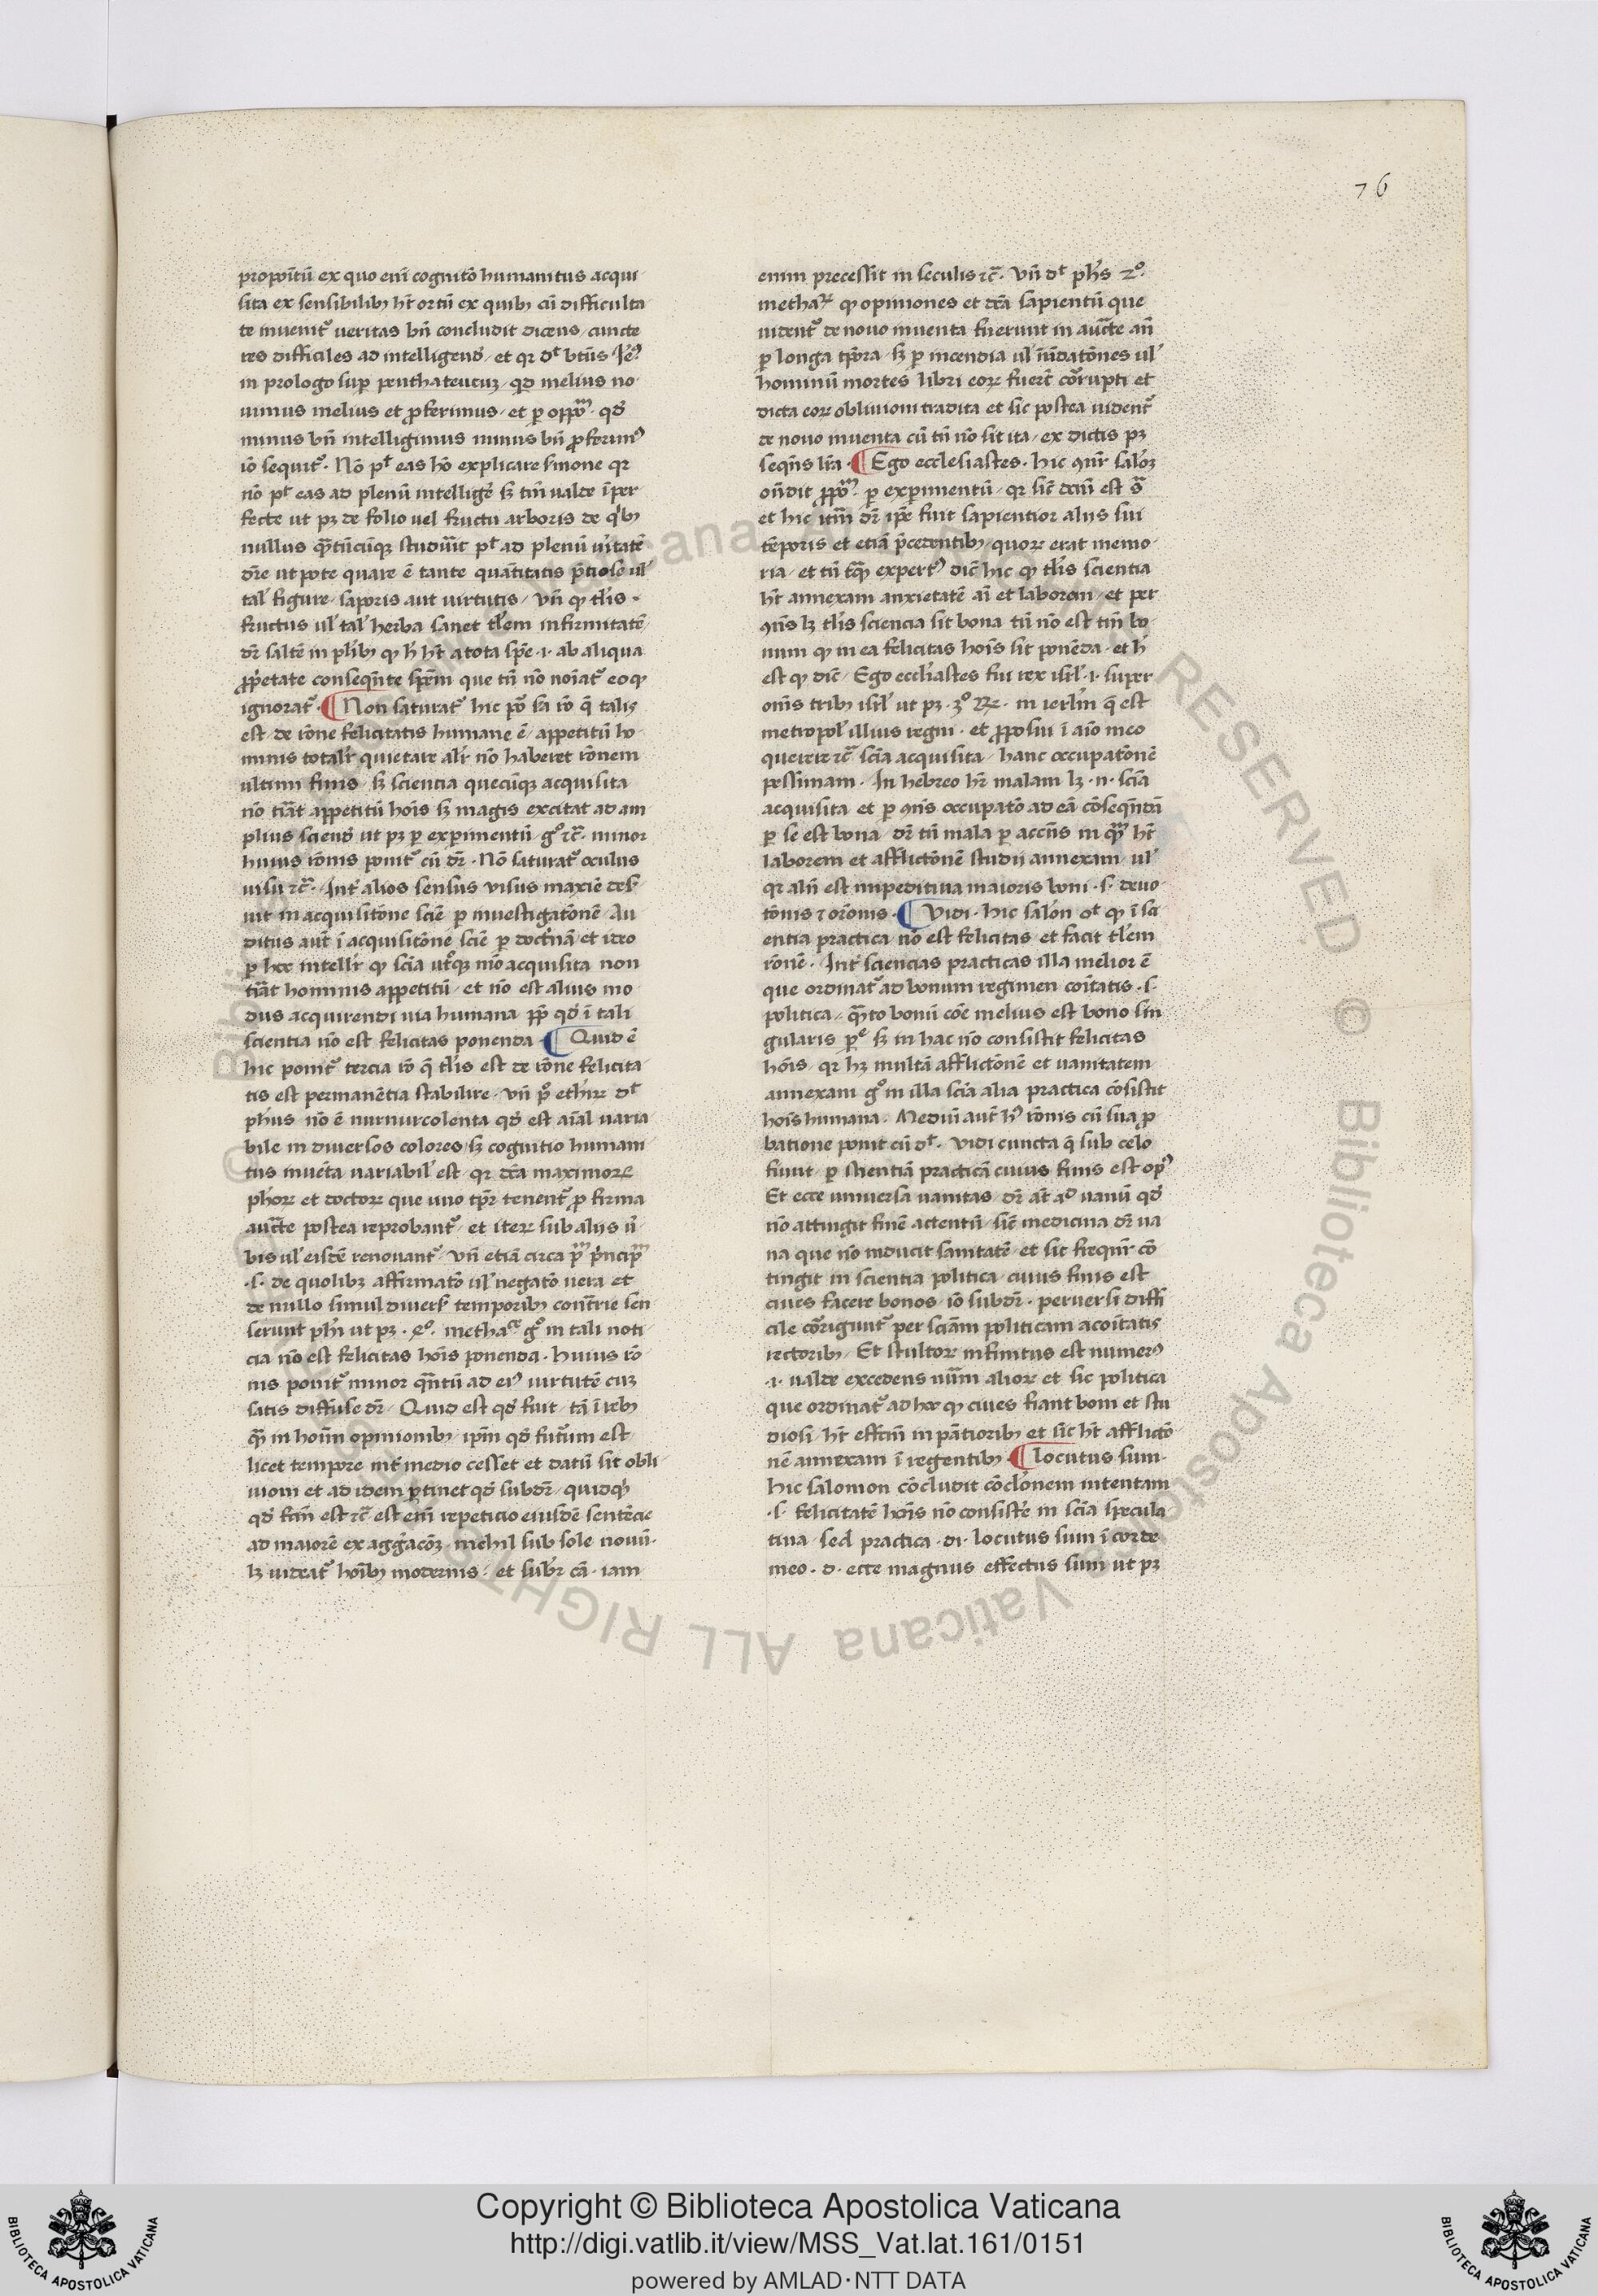 76
propoītū ex quo eni cognitō humanitus acqui
sita ex sensibilibꝫ hꝫ ortū ex quibꝫ cū difficulta
te inuenit᷑ ueritas bn̄ concludit dicens cuncte
res difficiles ad intelligend̄ et qꝛ dt btūs Je᷑
in prologo suꝑ penthateucuꝫ qd melius no
uimus melius et ꝓferimus et ꝑ oppoᵐ qd̄
minus bn̄ intelligimus minus bn̄ ꝓferimꝰ
iō sequit᷑ Nō pt eas hō explicare sm̄one qꝛ
nō pt eas ad plenū intellige᷑ sꝫ tm̄ ualde īper
fecte ut pꝫ de folio uel fructu arboris de qⁱbꝫ
nullus qᵃ̄tūcūqꝫ studuīt pt ad plenū uitatē
dr̄e ut pote quare ē tante quātitatis p̄ciose ul̄
tal̄ figure saporis aut uirtutis Vn̄ ꝙ tl̄is
fructus ul̄ tal̄ herba sanet tl̄em infirmitatē
dr̄ saltē in pl̄ibꝫ ꝙ h̄ hꝫ a tota sp̄e .i. ab aliqua
ꝓp̄etate conseqn̄te sp̄em que tn̄ nō noīat᷑ eo ꝙ
ignorat᷑ ¶ Non saturat᷑ hic pō sa rō q̄ talis
est de rōne felicitatis humane ē appetitū ho
minis totalr̄ quietare alr̄ nō haberet rōnem
ultimi finis sꝫ scientia quecūqꝫ acquisita
nō tiāt appetitū hoīs sꝫ magis excitat ad am
plius sciend̄ ut pꝫ ꝑ experimentū gͦ ⁊c̄ minor
huius rōnis ponit᷑ cū dr̄ Nō saturat᷑ oculus
uisu ⁊c̄ Int᷑ alios sensus visus maxīe des̄
uit in acquisitōne scīe ꝑ inuestigatōnē Au
ditus aut᷑ ī acquisitōne scīe ꝑ doctⁱnā et ideo
ꝑ hoc intellr̄ ꝙ scīa utrͣqꝫ mō acquisita non
tiāt hominis appetitū et nō est alius mo
dus acquirendi uia humana ꝓp̄ qd̄ ī tali
scientia nō est felicitas ponenda ¶ Quid ē
hic ponit᷑ tercia rō q̄ tl̄is est de rōne felicita
tis est permanētia stabilire Vn̄ pͦ ethicꝝ dt
ph̄us nō ē nurnurcolenta qd̄ est aīal uaria
bile in diuersos colores sꝫ cognitio humani
tus inuēta uariabil̄ est qꝛ dc̄a maximoꝝ
ph̄oꝝ et doctoꝝ que uno tp̄r tenent᷑ ꝓ firma
aucͭte postea reprobant᷑ et iteꝝ sub aliis ū
bis ul̄ eisdē renouant᷑ Vn̄ etiā circa pᵐ pⁱncipᵐ
.s. de quolibꝫ affirmatō ul̄ negatō uera et
de nullo simul diuers̄ temporibꝫ cont᷑rie sen
serunt ph̄i ut pꝫ .4ͦ. methaᶜᵉ gͦ in tali noti
cia nō est felicitas hoīs ponenda Huius rō
nis ponit᷑ minor qn̄tū ad eiꝰ uirtutē cuꝫ
satis diffuse dr̄ Quid est qd̄ fuit tā ī rebꝫ
qᵃ̄ in hoīm opinionibꝫ ip̄m qd̄ futurū est
licet tempore int᷑medio cesset et datū sit obli
uioni et ad idem ꝑtinet qd̄ subdr̄ quid qᵒ
qd̄ fcm̄ est ⁊c̄ est eni repeticio eiusdē sentēcie
ad maiorē exagg᷑acōꝫ nichil sub sole nouū
lꝫ uideat᷑ hoībꝫ modernis et subdr̄ cā iam
enim precessit in seculis ⁊c̄ Vn̄ dt ph̄s 2ͦ
methaꝝ ꝙ opiniones et dc̄a sapientū que
uident᷑ de nouo inuenta fuerunt in aucͭte an̄
ꝑ longa tp̄ora sꝫ ꝑ incendia ul̄ inūdatōnes ul̄
hominū mortes libri eoꝝ fuert᷑ corrupti et
dicta eoꝝ obliuioni tradita et sic postea uident᷑
de nouo inuenta cū tn̄ nō sit ita ex dictis pꝫ
seqn̄s lr̄a ¶ Ego ecclesiastes hic ꝯn̄r salōꝫ
on̄dit ꝓpoᵐ ꝑ experimentū qꝛ sic̄ dcm̄ est sᵃ
et hic itm̄ dr̄ ip̄e fuit sapientior aliis sui
tēporis et etiā p̄cedentibꝫ quoꝝ erat memo
ria et tn̄ tꝙᵃ̄ expertꝰ dic̄ hic ꝙ tl̄is scientia
hꝫ annexam anxietatē aī et laborem et per
ꝯn̄s lꝫ tl̄is sciencia sit bona tn̄ nō est tm̄ bo
num ꝙ in ea felicitas hoīs sit ponēda et h̄
est ꝙ dic̄ Ego eccl̄iastes fui rex isrl̄ .i. super
om̄s tribꝫ isrl̄ ut pꝫ .3ͦ Rꝫ. in ierl̄m q̄ est
metropol̄ illius regni et ꝓposui ī aīo meo
querere ⁊c̄ scīa acquisita hanc occupatōnē
pessimam In hebreo hr̄ malam lꝫ .n. scīa
acquisita et ꝑ ꝯn̄s occupatō ad eā cōseqn̄dā
ꝑ se est bona dr̄ tn̄ mala ꝑ accn̄s in qᵃ̄ hꝫ
laborem et afflictōnē studii annexam ul̄
qꝛ aln̄ est impeditiua maioris boni .s. deuo
tōnis ⁊ orōnis ¶ Vidi hic salon̄ dt ꝙ ī sci
entia practica nō est felicitas et facit tl̄em
rōnē Int᷑ sciencias practicas illa melior ē
que ordinat᷑ ad bonum regimen coītatis .s.
politica qᵃ̄to bonū coē melius est bono sin
gularis pᵉ sꝫ in hac nō consistit felicitas
hoīs qꝛ hꝫ multā afflictōnē et uanitatem
annexam gͦ in illa scīa alia practica cōsistit
hoīs humana Mediū aut᷑ hꝰ rōnis cū sua ꝓ
batione ponit cū dt Vidi cuncta q̄ sub celo
fiunt ꝑ scientiā practicā cuius finis est opꝰ
Et ecce uniuersa uanitas dr̄ at᷑ ad uanū qd̄
nō attingit finē actentū sic̄ medicina dr̄ ua
na que nō inducit sanitatē et sic frequn̄r cō
tingit in scientia politica cuius finis est
ciues facere bonos iō subdr̄ peruersi diffi
cile corrigunt᷑ per sciām politicam a coītatis
rectoribꝫ Et stultoꝝ infinitus est numerꝰ
.i. ualde excedens nūm alioꝝ et sic politica
que ordinat᷑ ad hoc ꝙ ciues fiant boni et stu
diosi hꝫ effcm̄ in pātioribꝫ et sic hꝫ afflictō
nē annexam ī regentibꝫ ¶ locutus sum
hic salomon cōcludit cōcl᷑onem intentam
.s. felicitatē hoīs nō consiste᷑ in scīa specula
tiua sed practica .di. locutus sum ī corde
meo .d. ecce magnus effectus sum ut pꝫ
Copyright © Biblioteca Apostolica Vaticana
http://digi.vatlib.it/view/MSS_Vat.lat.161/0151
powered by AMLAD·NTT DATA
BIBLIOTECA APOSTOLICA VATICANA
BIBLIOTECA APOSTOLICA VATICANA
© Biblioteca Apostolica Vaticana ALL RIGHTS RESERVED © Biblioteca Apostolica Vaticana ALL RIGHTS RESERVED